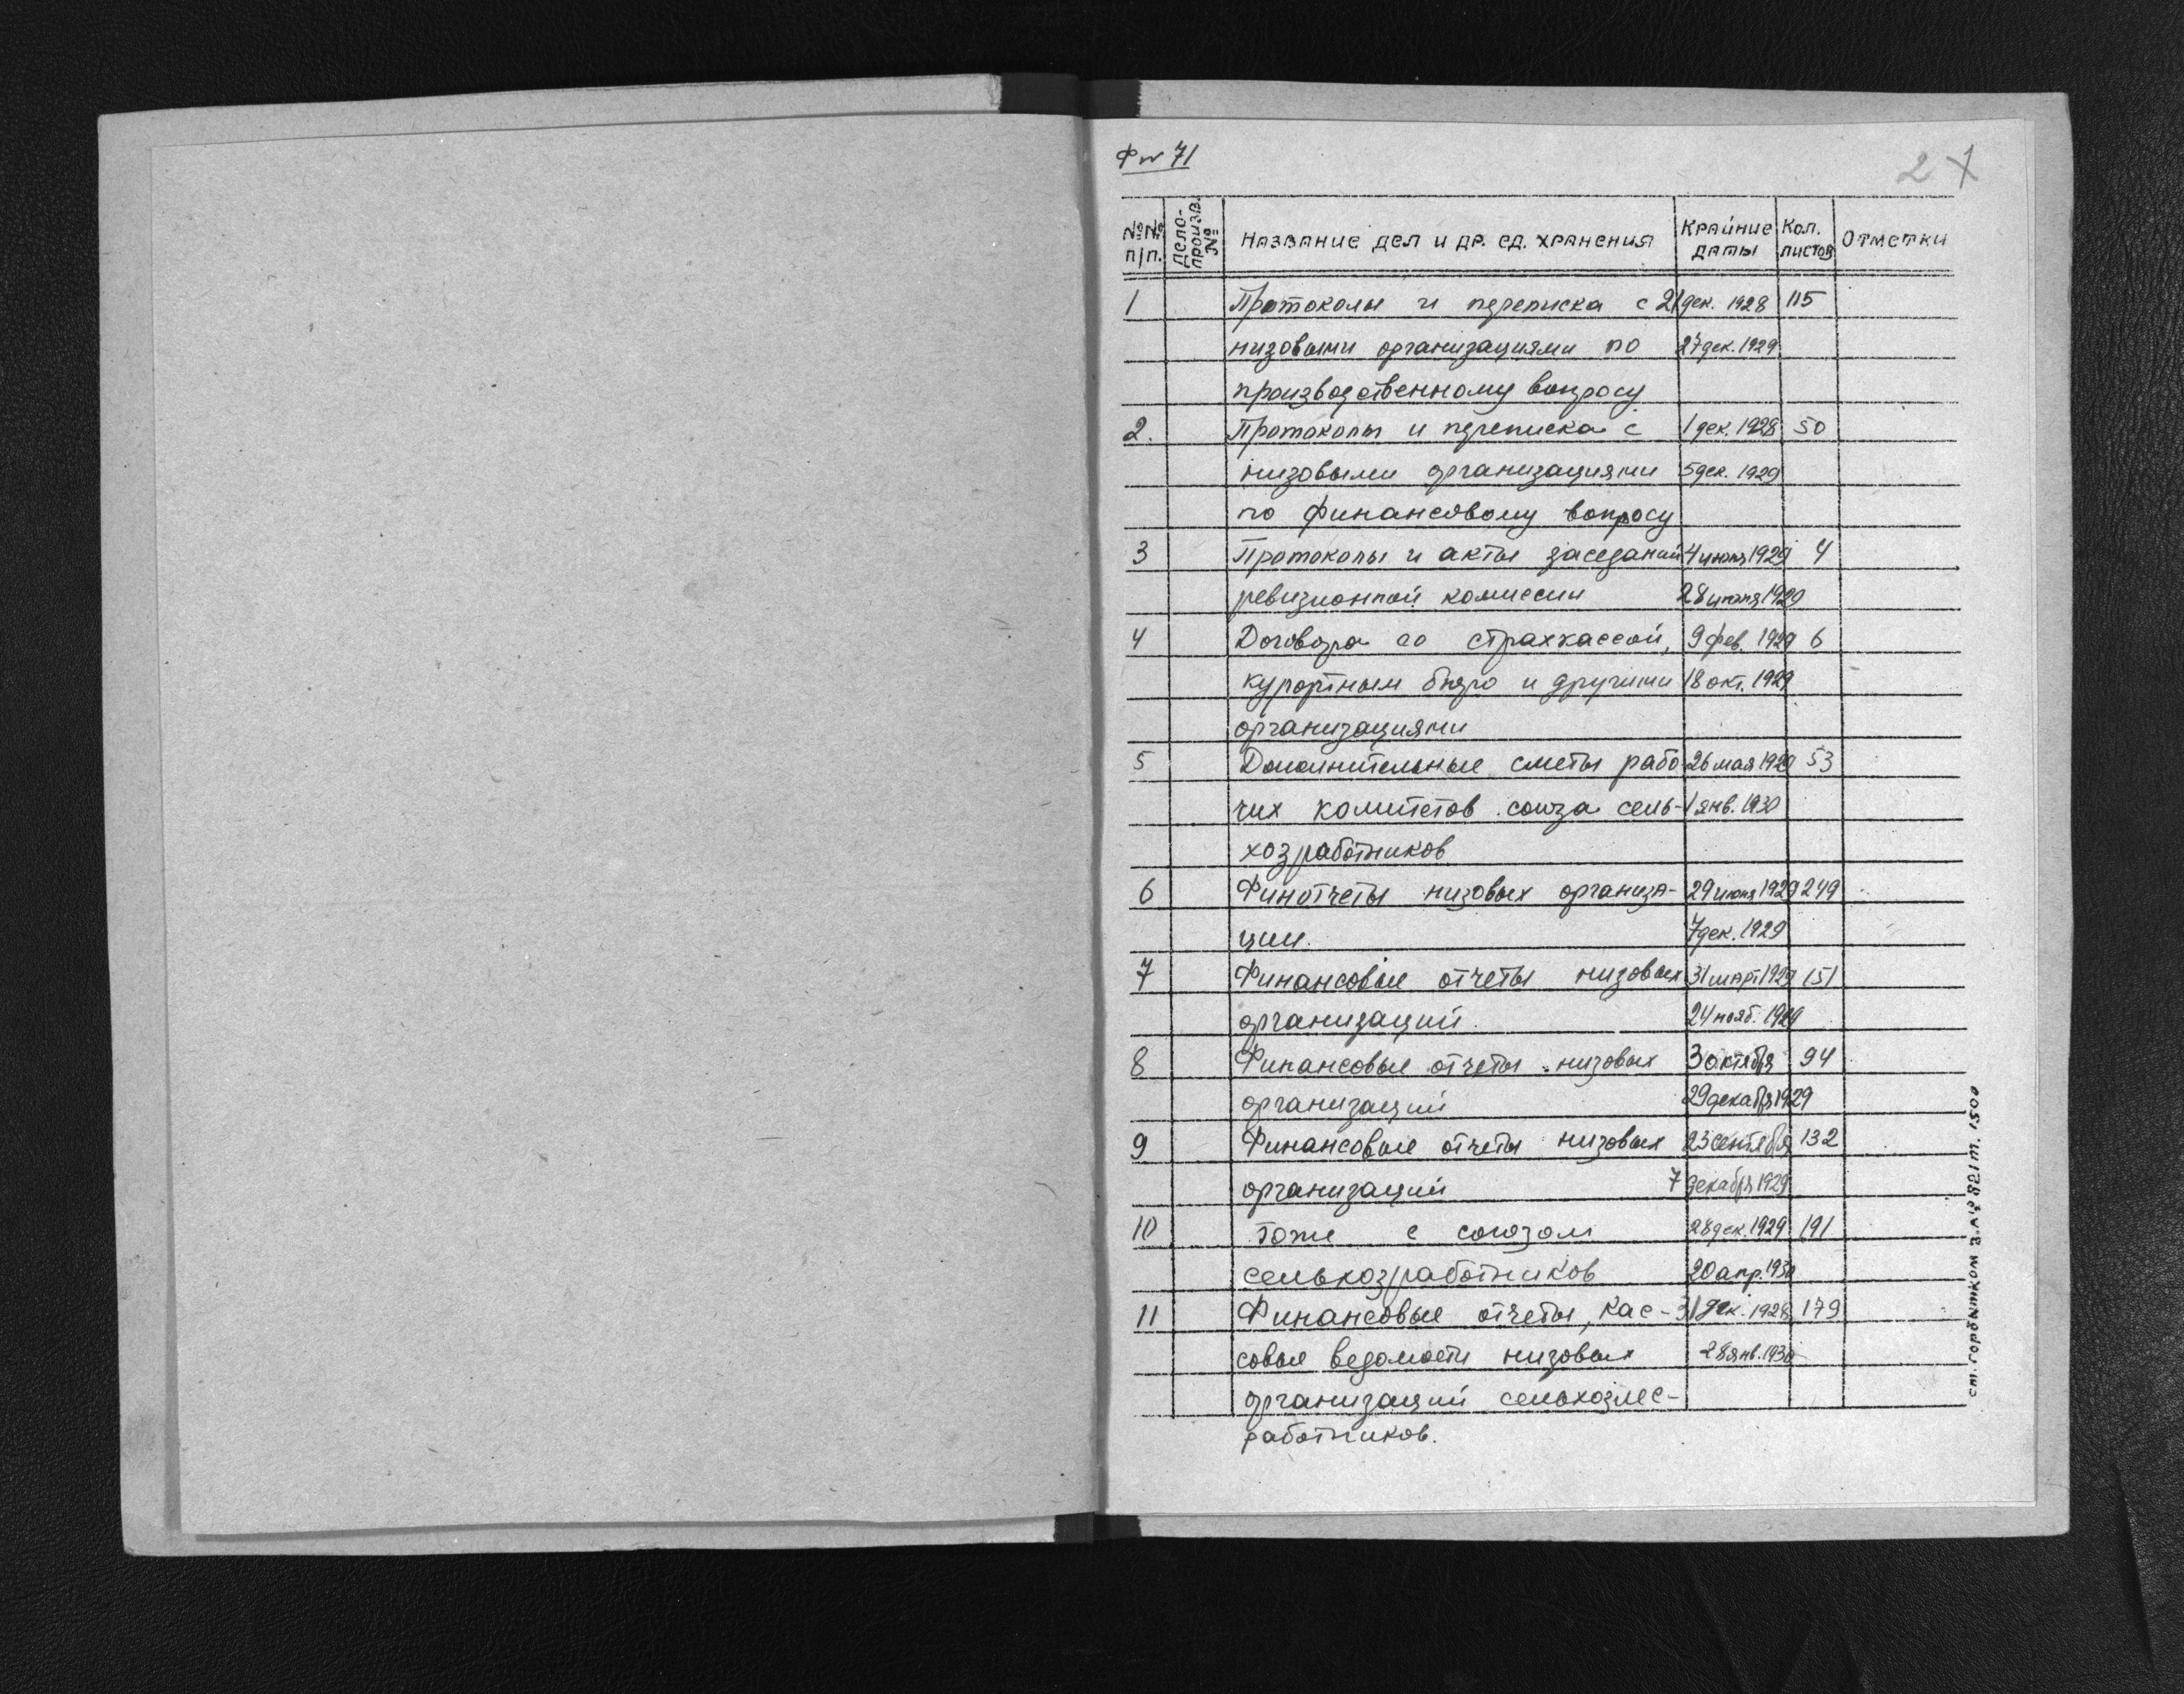 Ф № 71
2 1
№№ п/п.
Дело-произв. №
Название дел и др. ед. хранения
Крайние даты
Кол. листов
Отметки
1 Протоколы и переписка с 21 дек. 1928 115
низовыми организациями по 27 дек. 1929
производственному вопросу
2. Протоколы и переписка с 1 дек. 1928 50
низовыми организациями 5 дек. 1929
по финансовому вопросу
3 Протоколы и акты заседаний 1929 4
ревизионной комиссии 28 1929
4 Договора со страхкассой, 9 фев. 1929 6
курортным бюро и другими 18 окт. 1929
организациями
5 Дополнительные сметы рабо- 26 мая 1929 53
чих комитетов союза сель- 1 янв. 1930
хозработников
6 Финотчеты низовых организа- 29 июня 1929 249
ции. 7 дек. 1929
7 Финансовые отчеты низовых 31 март 1929 151
организаций. 24 нояб. 1929
8 Финансовые отчеты низовых 3 октября 94
организаций 29 декабря 1929
9 Финансовые отчеты низовых 23 сентября 132
организаций 7 декабря 1929
10 тоже с союзом 28 дек. 1929 191
сельхозработников 20 апр. 1930
11 Финансовые отчеты, кас- 31 дек. 1928 179
совые ведомости низовых 28 янв. 1930
организаций сельхозлес-
работников.
ст. горбытком з.№ 821 т. 1500